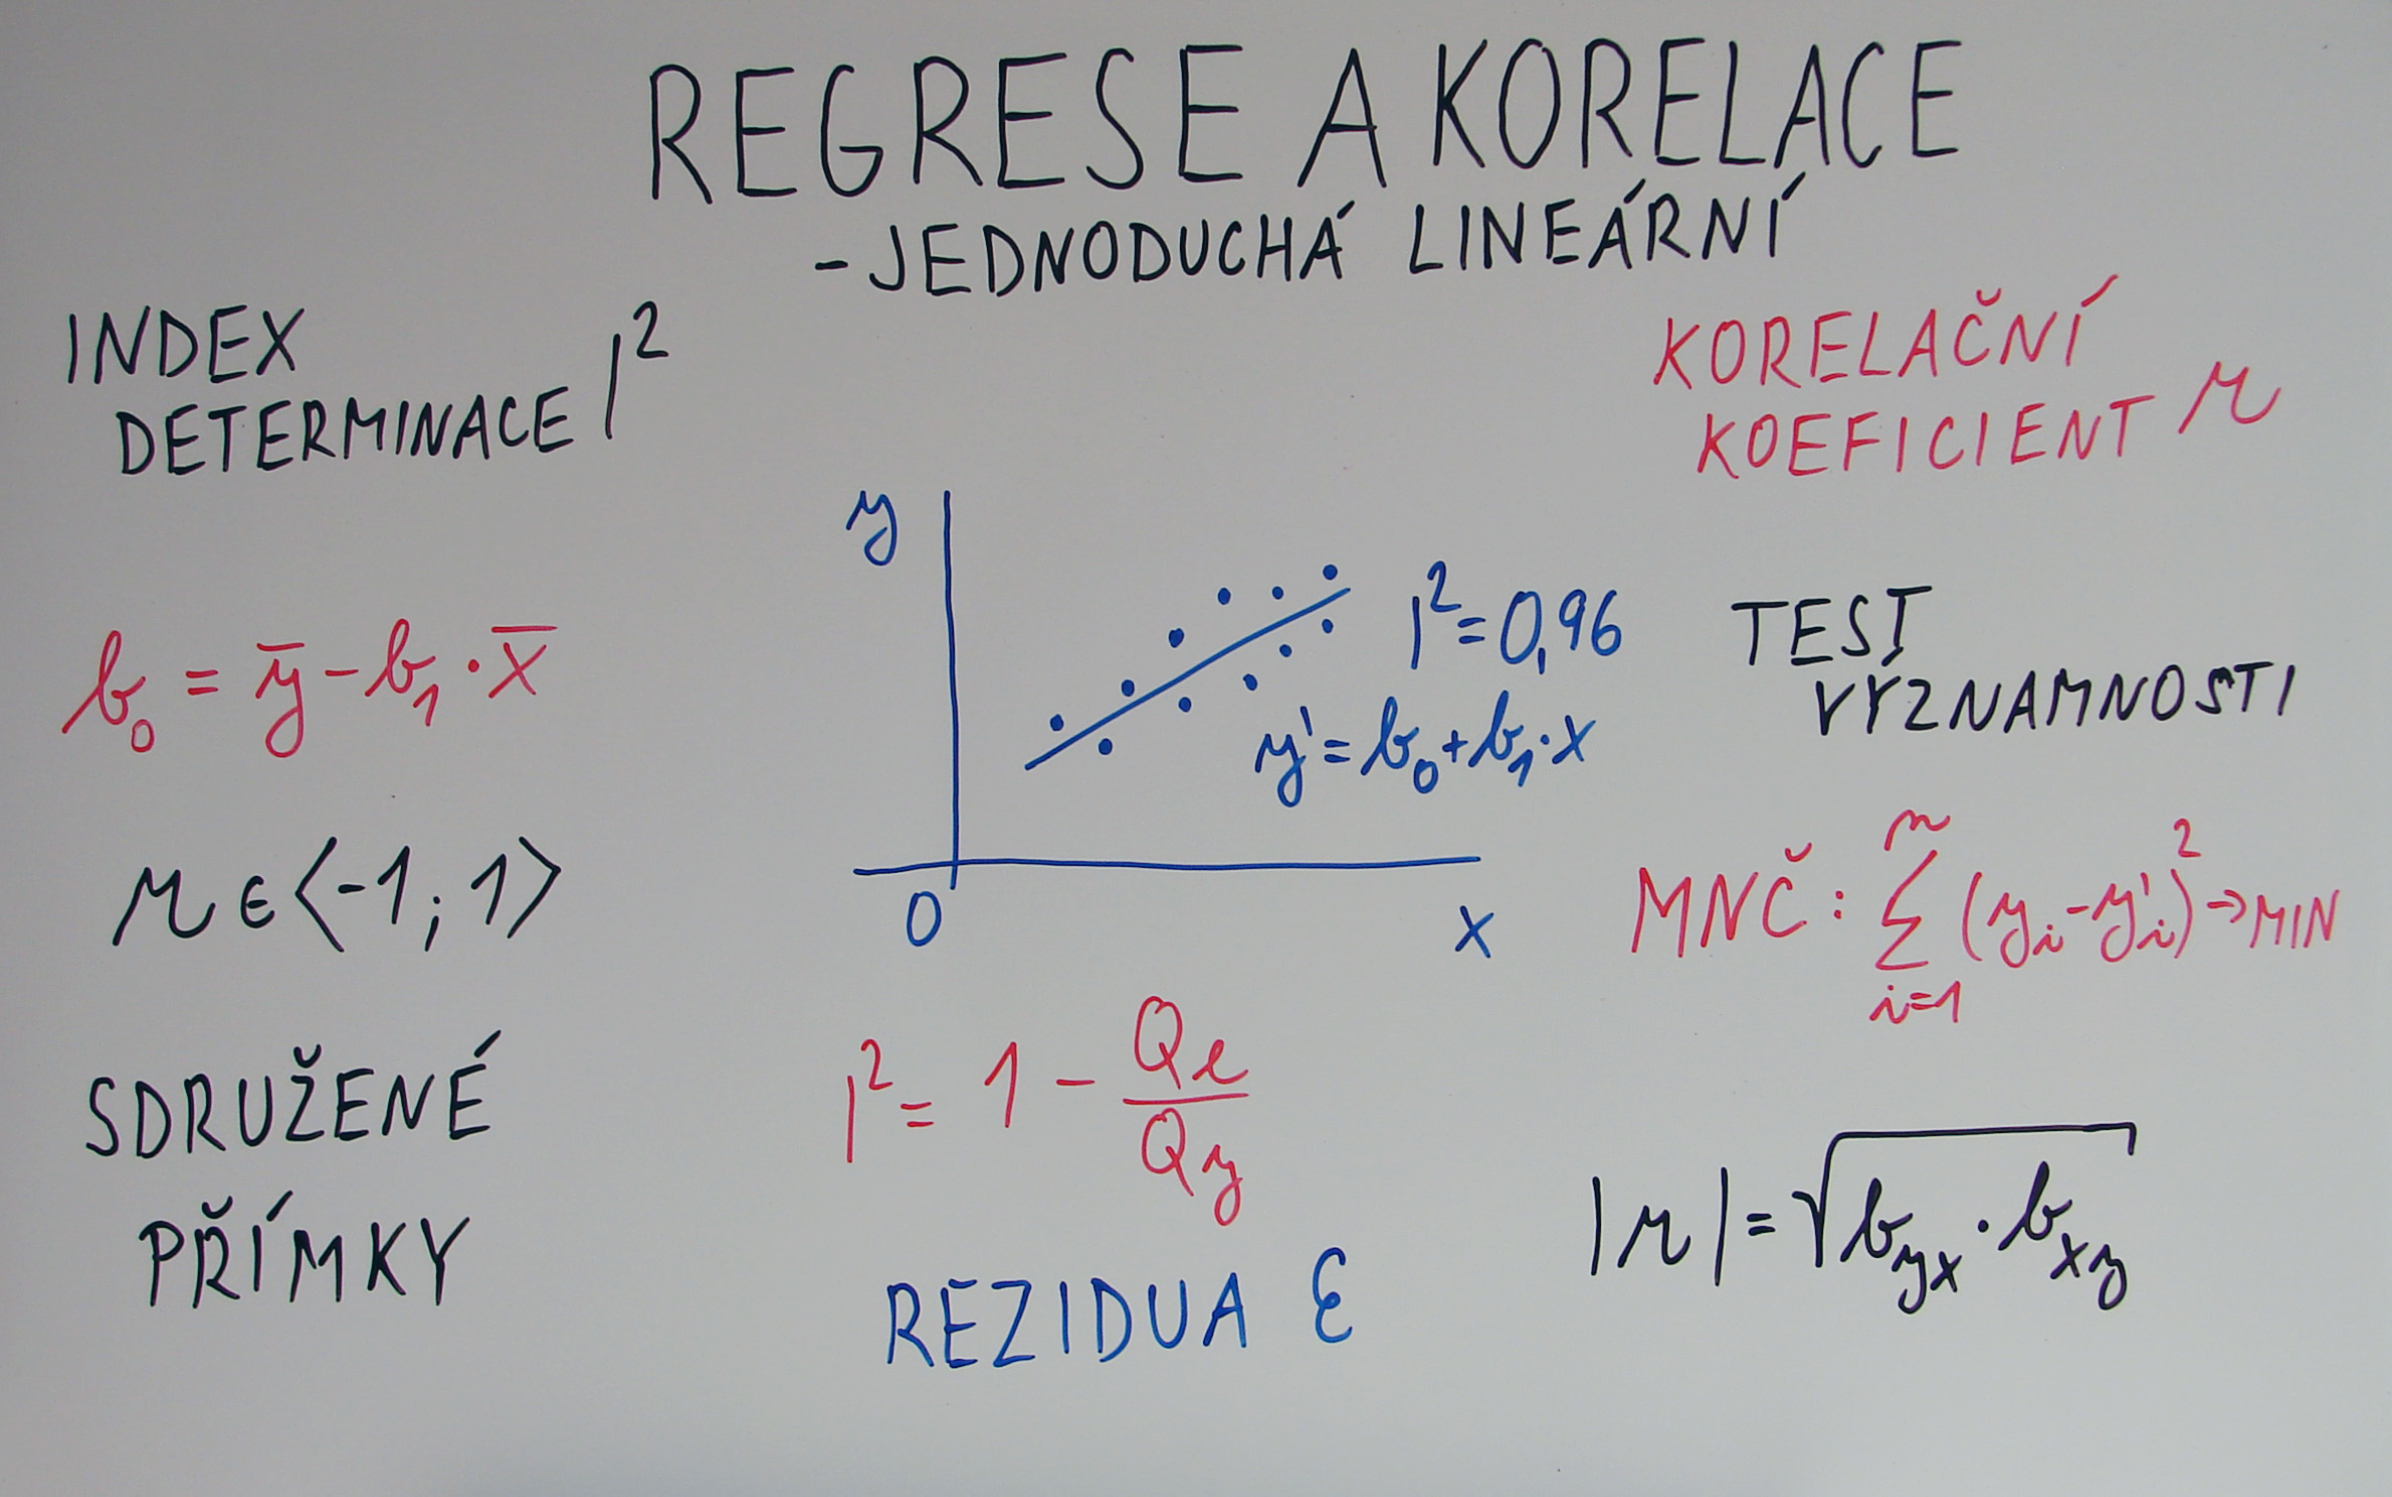 REGRESE A KORELACE
-JEDNODUCHÁ LINEÁRNÍ
INDEX
DETERMINACE I²
KORELAČNÍ
KOEFICIENT r
y
I² = 0,96
y' = b₀ + b₁·x
0
x
TEST
VÝZNAMNOSTI
b₀ = y̅ - b₁·x̅
r ∈ ⟨-1; 1⟩
MNČ: ∑ᵢ₌₁ⁿ (yᵢ - y'ᵢ)² → MIN
SDRUŽENÉ
PŘÍMKY
I² = 1 - Qe/Qy
|r| = √(b_yx · b_xy)
REZIDUA ε